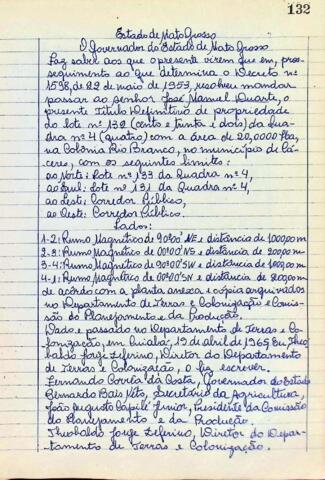 132
Estado de Mato Grosso
O Governador do Estado de Mato Grosso
Faz saber aos que o presente virem que em, pros-
seguimento ao que determina o Decreto nº
1598, de 22 de maio de 1953, resolveu mandar
passar ao senhor José Manuel Duarte, o
presente Título Definitivo de propriedade
do lote nº 132 (cento e trinta e dois) da Qua-
dra nº 4 (quatro) com a área de 20,0000 Has,
na Colônia Rio Branco, no município de Cá-
ceres, com os seguintes limites:
ao Norte: Lote nº 133 da Quadra nº 4,
ao Sul: Lote nº 131 da Quadra nº 4,
ao Leste: Corredor Público,
ao Oeste: Corredor Público.
Lados:
1-2: Rumo Magnético de 90º00' NE e distância de 1000,00 m
2-3: Rumo Magnético de 00º00' e distância de 200,00 m
3-4: Rumo Magnético de 90º00' SW e distância de 1000,00 m
4-1: Rumo Magnético de 00º00' e distância de 200,00 m
de acôrdo com a planta anexa e cópia arquivados
no Departamento de Terras e Colonização e Comis-
são do Planejamento e da Produção.
Dado e passado no Departamento de Terras e Co-
lonização, em Cuiabá, 19 de abril de 1965 Eu, Theo
baldo Jorge Zeferino, Diretor do Departamento
de Terras e Colonização, o fiz escrever.
Fernando Corrêa da Costa, Governador do Estado
Bernardo Bais Neto, Secretário da Agricultura,
João Augusto Capilé Junior, Presidente da Comissão
do Planejamento e da Produção.
Theobaldo Jorge Zeferino, Diretor do Depar-
tamento de Terras e Colonização.